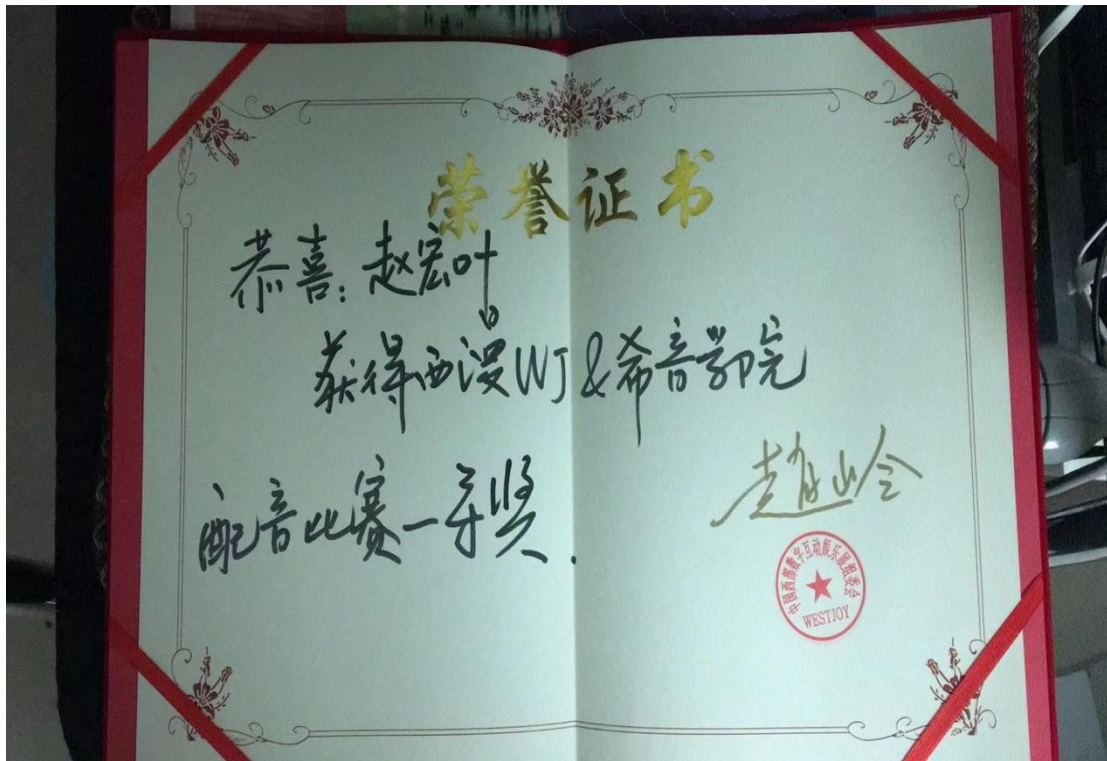 荣誉证书
恭喜:赵宏叶
获得西漫WJ&希音
配音比赛一等奖.
赵岭
中国西部数字互动娱乐展组委会
WESTJOY